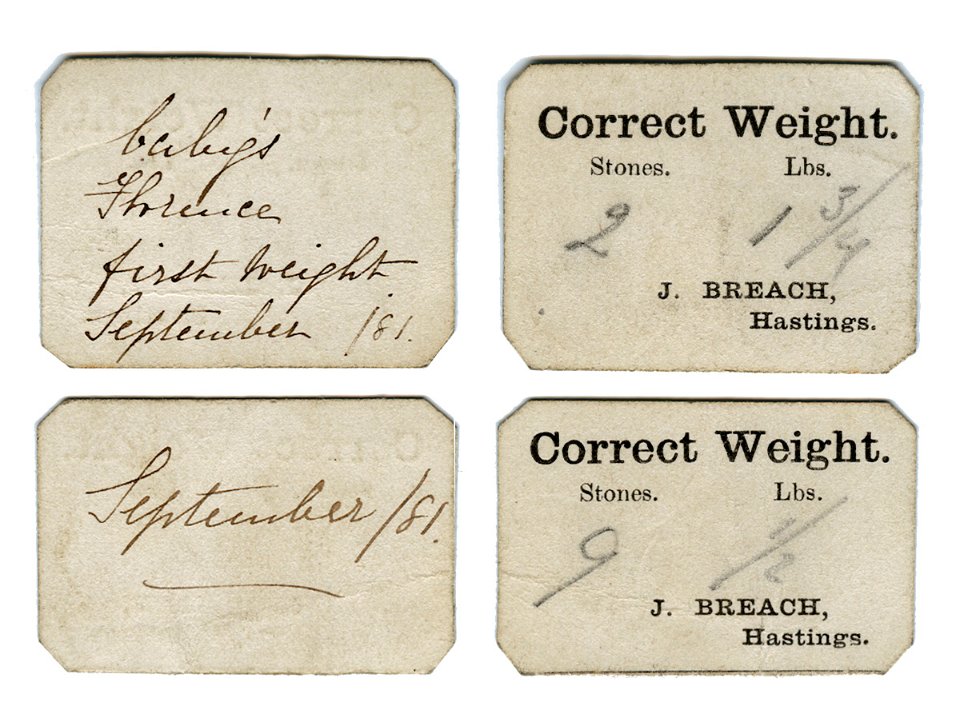 baby's
Florence
first weight
September /81.
Correct Weight.
Stones. Lbs.
2 1 3/4
J. BREACH,
Hastings.
September /81.
Correct Weight.
Stones. Lbs.
9 1/2
J. BREACH,
Hastings.